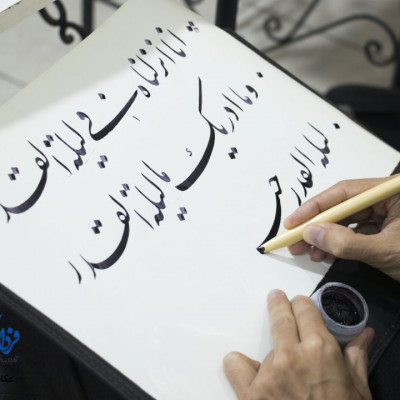 انا انزلناه فی لیلة القدر
و ما ادریک ما لیلة القدر
لیلة القدر خیر